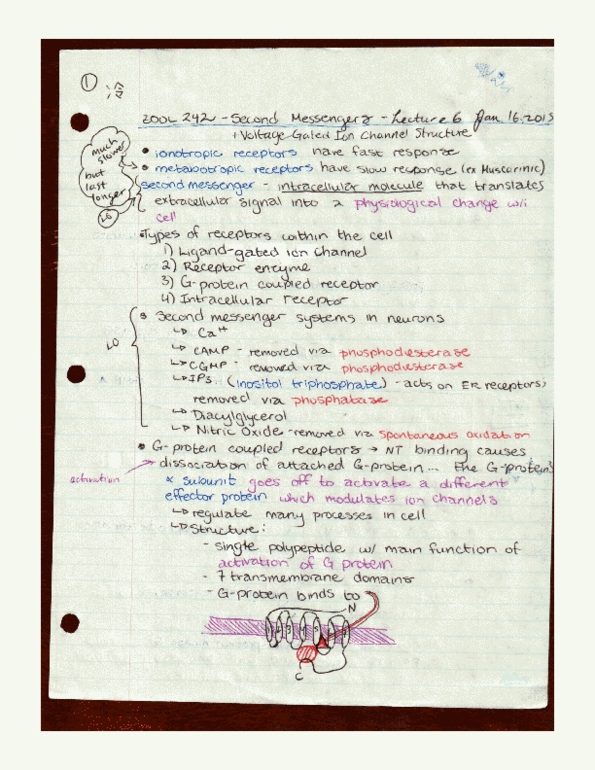 1
冷
ZOOL 242 - Second Messengers - Lecture 6 Jan 16, 2015
Voltage-Gated Ion Channel Structure
much slower
but last longer
LO
• ionotropic receptors have fast response
• metabotropic receptors have slow response (ex Muscarinic)
second messenger - intracellular molecule that translates
extracellular signal into a physiological change w/i
cell
• Types of receptors within the cell
1) Ligand-gated ion channel
2) Receptor enzyme
3) G-protein coupled receptor
4) Intracellular receptor
LO
• Second messenger systems in neurons
↳ Ca++
↳ cAMP - removed via phosphodiesterase
↳ cGMP - removed via phosphodiesterase
↳ IP3 (inositol triphosphate) - acts on ER receptors,
removed via phosphatase
↳ Diacylglycerol
↳ Nitric Oxide - removed via spontaneous oxidation
• G-protein coupled receptors → NT binding causes
activation
dissociation of attached G-protein... the G-protein's
α subunit goes off to activate a different
effector protein which modulates ion channels
↳ regulate many processes in cell
↳ Structure:
- single polypeptide w/ main function of
activation of G protein
- 7 transmembrane domains
- G-protein binds to
N
C